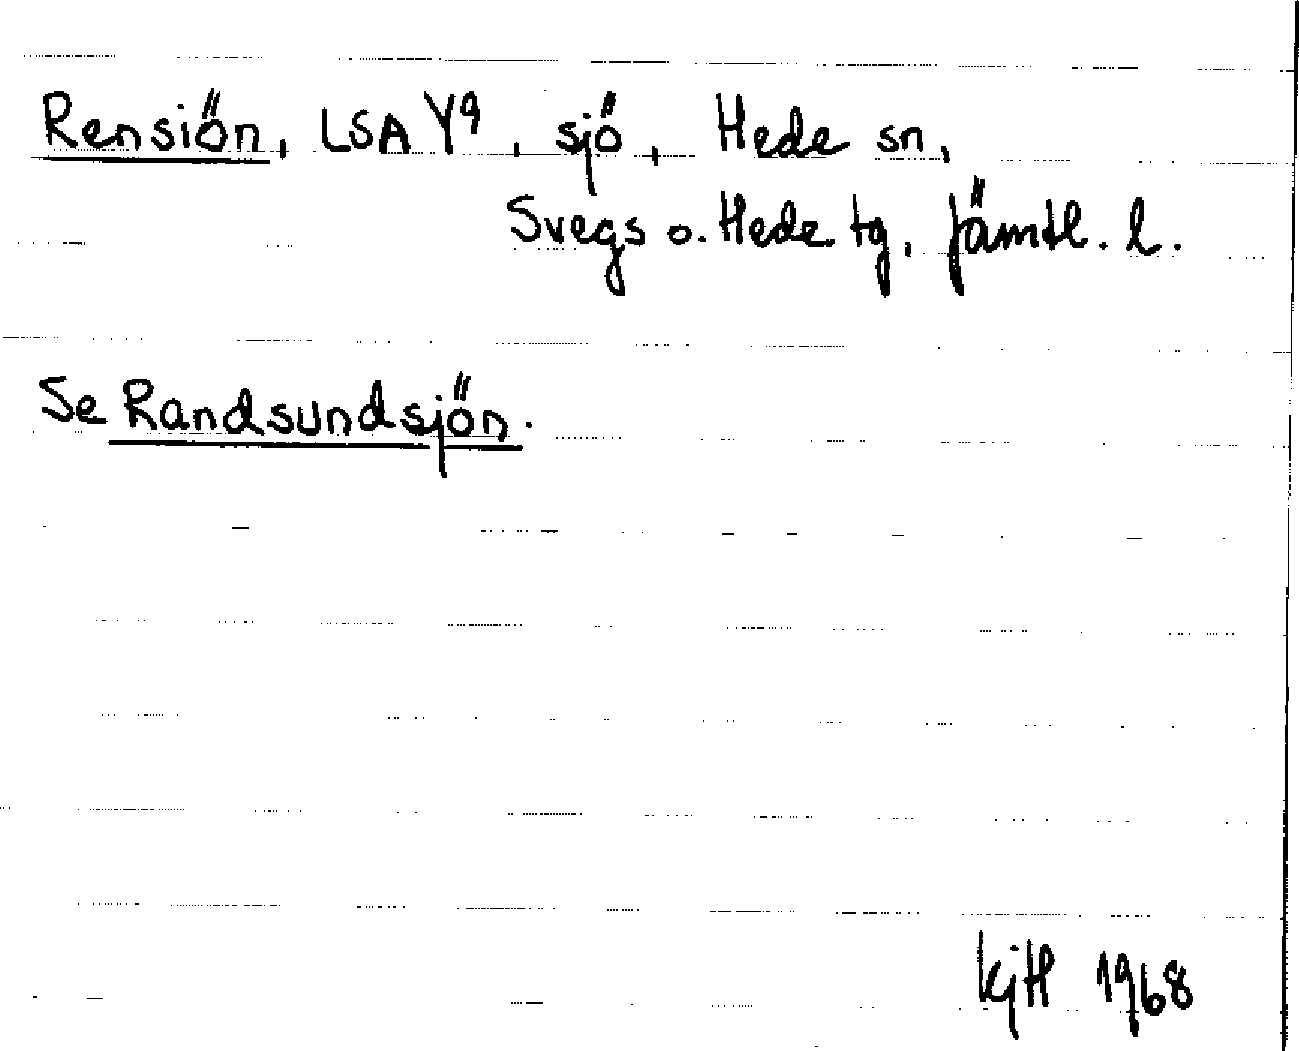 Rensiön, LSA Y9, sjö, Hede sn,
Svegs o. Hede tg, Jämtl. l.
Se Randsundsjön.
KjH 1968